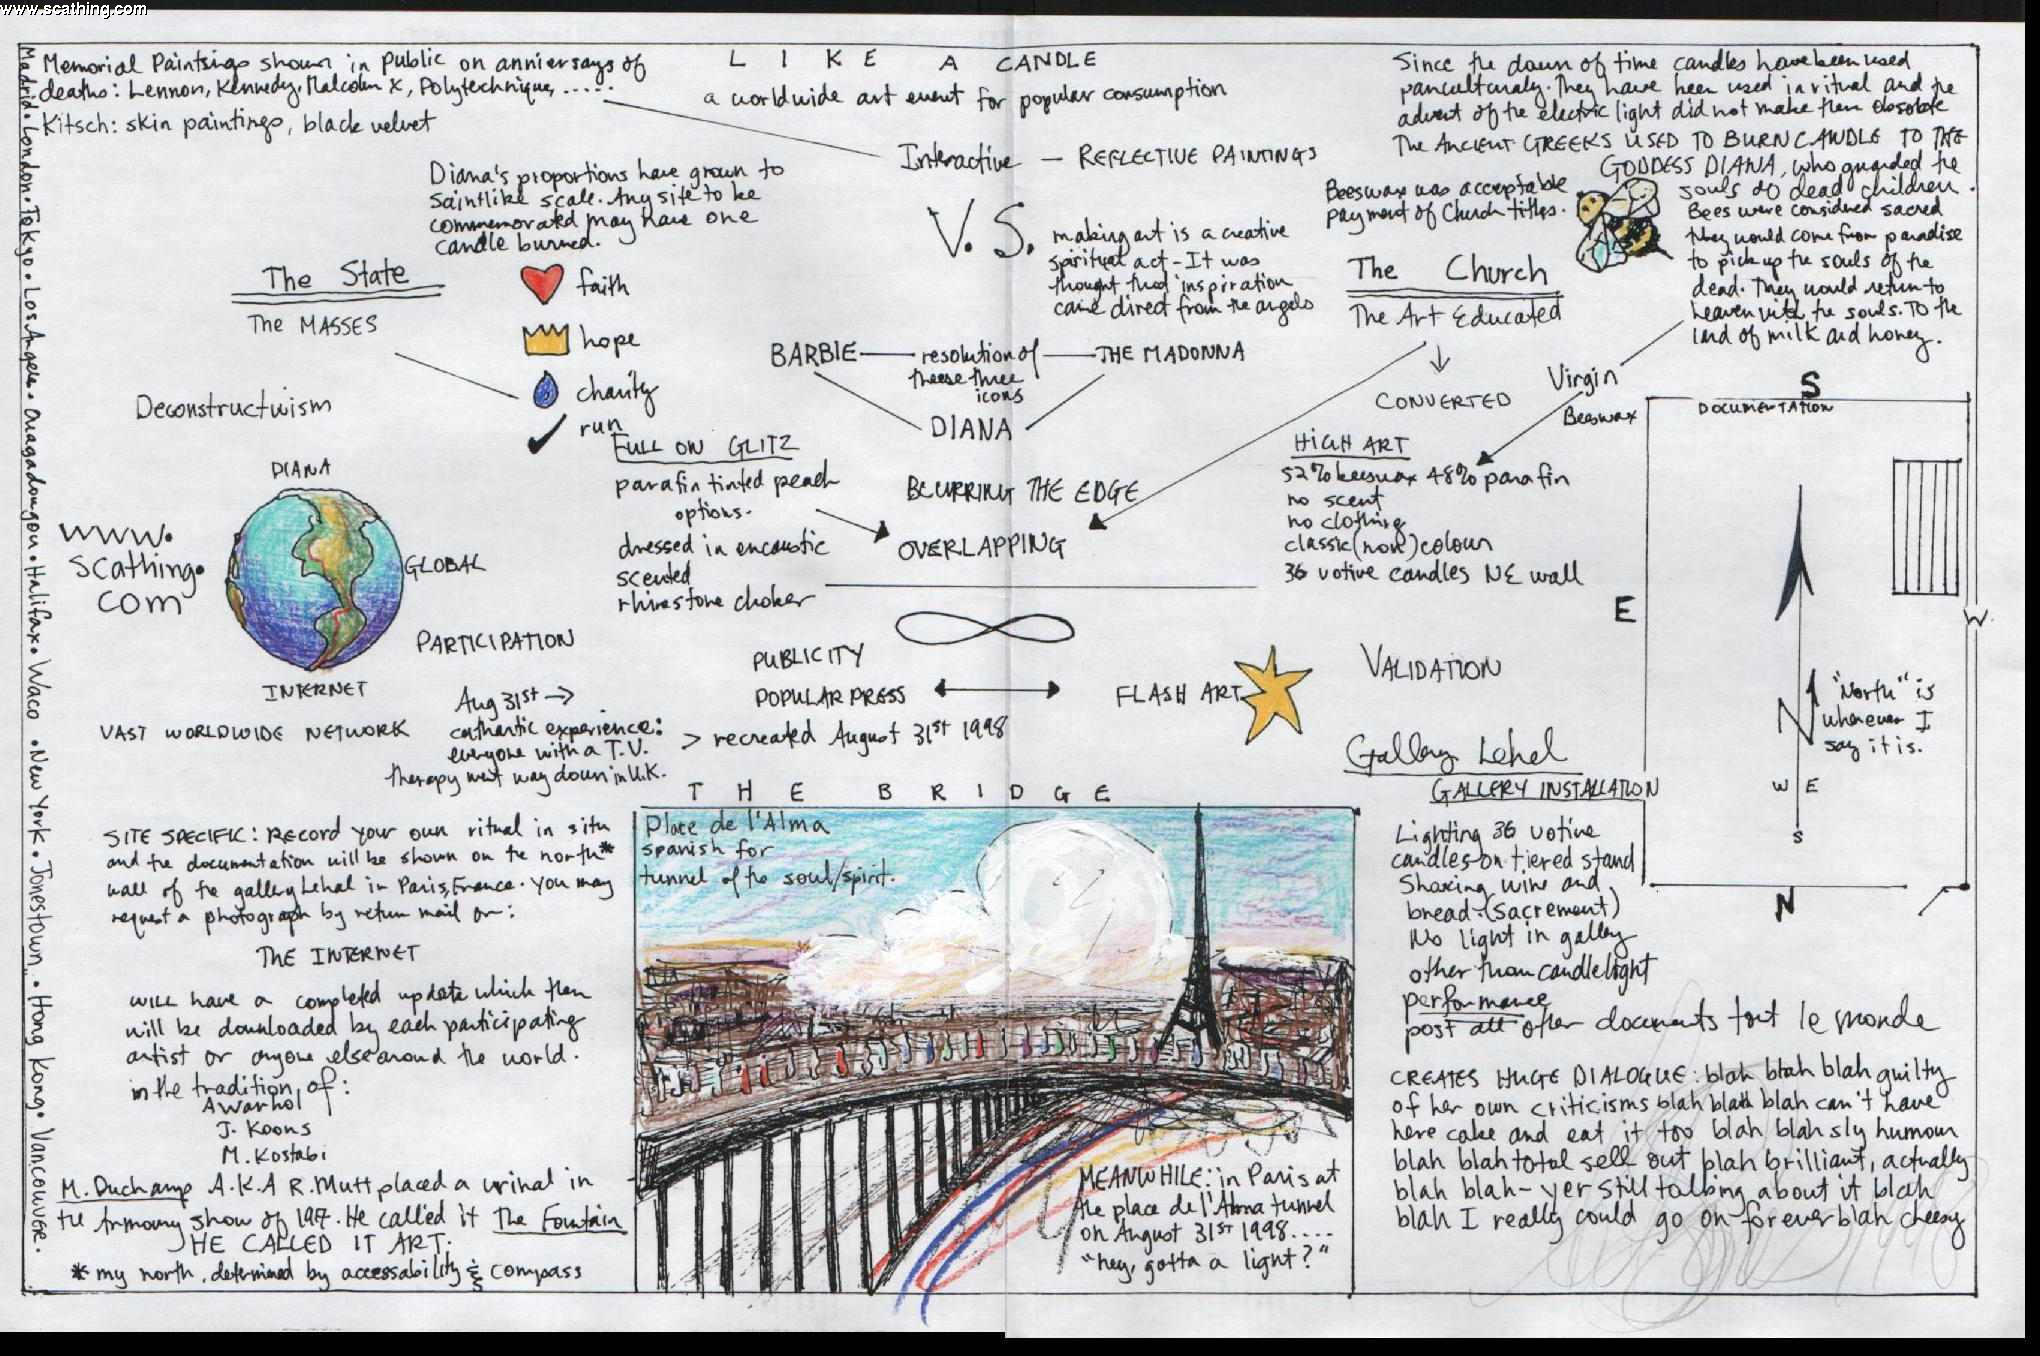 www.scathing.com
LIKE A CANDLE
a worldwide art event for popular consumption
Memorial Paintings shown in public on anniersays of
deaths: Lennon, Kennedy, Malcolm X, Polytechnique, .....
Kitsch: skin paintings, black velvet
Interactive — REFLECTIVE PAINTINGS
V.S.
Diana's proportions have grown to
saintlike scale. Any site to be
commemorated may have one
candle burned.
The State
The MASSES
faith
hope
charity
run
Deconstructuism
making art is a creative
spiritual act - It was
thought that inspiration
came direct from the angels
Since the dawn of time candles have been used
panculturaly. They have been used in ritual and the
advent of the electric light did not make them obsolete
The ANCIENT GREEKS USED TO BURN CANDLE TO THE
GODDESS DIANA, who guarded the
souls do dead children.
Bees were considered sacred
they would come from paradise
to pick up the souls of the
dead. They would return to
heaven with the souls. TO the
land of milk and honey.
Beeswax was acceptable
payment of Church tithes.
The Church
The Art Educated
CONVERTED
Virgin
Beeswax
BARBIE — resolution of — THE MADONNA
theese three
icons
DIANA
FULL ON GLITZ
parafin tinted peach
options.
dressed in encaustic
scented
rhinestone choker
BLURRING THE EDGE
OVERLAPPING
HIGH ART
52% beeswax 48% parafin
no scent
no clothing
classic (now) colour
36 votive candles NE wall
DIANA
www.
scathing.
com
GLOBAL
PARTICIPATION
INTERNET
VAST WORLDWIDE NETWORK
Aug 31st →
cathartic experience:
everyone with a T.V.
therapy went way down in U.K.
PUBLICITY
POPULAR PRESS
FLASH ART
> recreated August 31st 1998
VALIDATION
S
DOCUMENTATION
E
W.
N
"North" is
wherever I
say it is.
W E
S
N
Gallery Lehal
GALLERY INSTALLATION
Lighting 36 votive
candles on tiered stand
Sharing wine and
bread - (sacrement)
No light in gallery
other than candlelight
performance
post all other documents tout le monde
CREATES HUGE DIALOGUE: blah blah blah guilty
of her own criticisms blah blah blah can't have
here cake and eat it too blah blah sly humour
blah blah total sell out blah brilliant, actually
blah blah - yer still talking about it blah
blah I really could go on forever blah cheesy
SITE SPECIFIC: RECORD your own ritual in situ
and the documentation will be shown on the north*
wall of the gallery Lehal in Paris, France. You may
request a photograph by return mail or:
THE INTERNET
will have a completed update which then
will be downloaded by each participating
artist or anyone else around the world.
in the tradition of:
A Warhol
J. Koons
M. Kostabi
M. Duchamp A.K.A R. Mutt placed a urinal in
the Armoury show of 197. He called it The Fountain
HE CALLED IT ART.
* my north, determined by accessability & compass
THE BRIDGE
Place de l'Alma
spanish for
tunnel of the soul/spirit.
MEANWHILE: in Paris at
the place de l'Alma tunnel
on August 31st 1998....
"hey, gotta a light?"
Madrid • London • Tokyo • Los Angeles • Ouagadougou • Halifax • Waco • New York • Jonestown • Hong Kong • Vancouver.